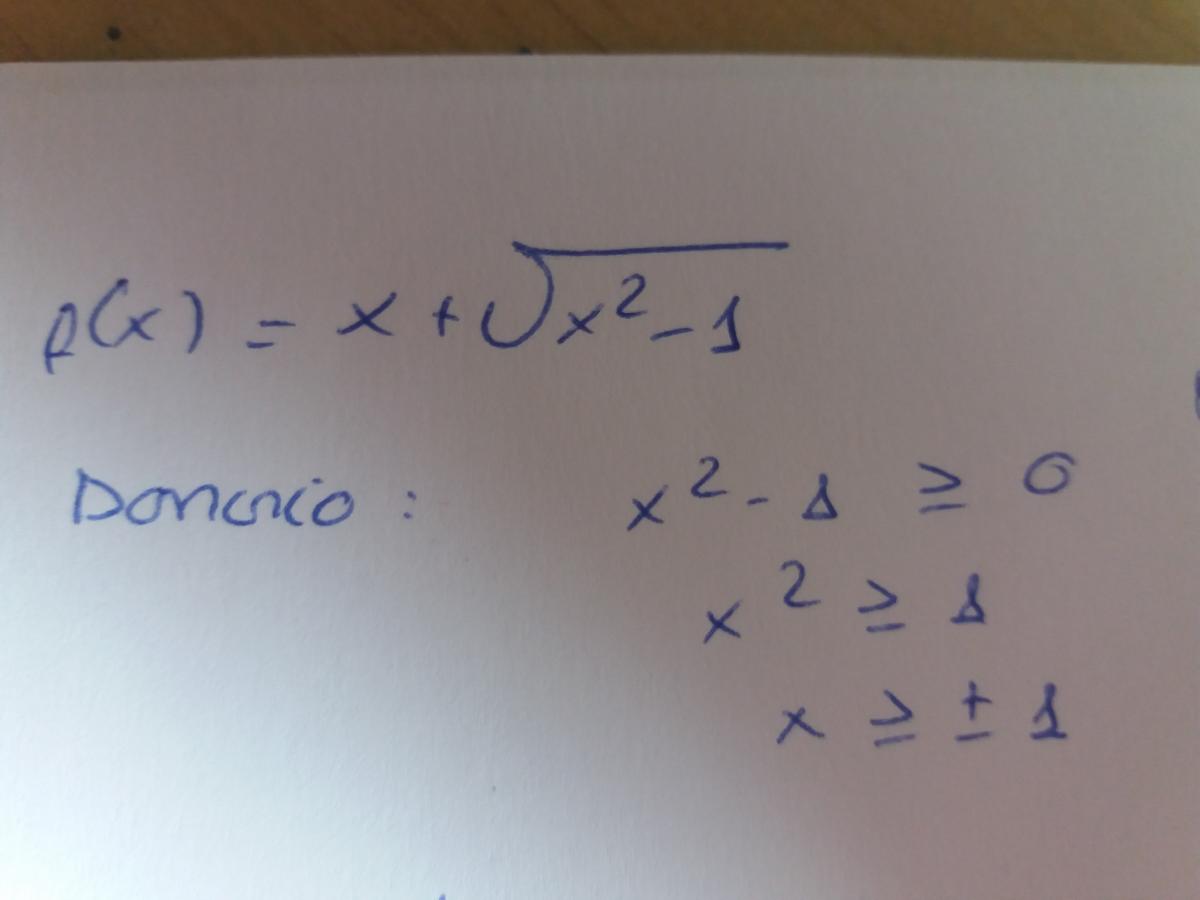 f(x) = x + √(x² - 1)
Dominio : x² - 1 ≥ 0
x² ≥ 1
x ≥ ± 1